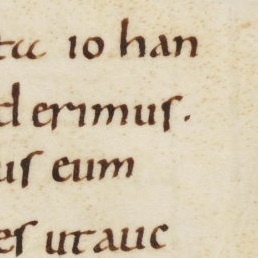 io han
d erimus.
us eum
es utauc